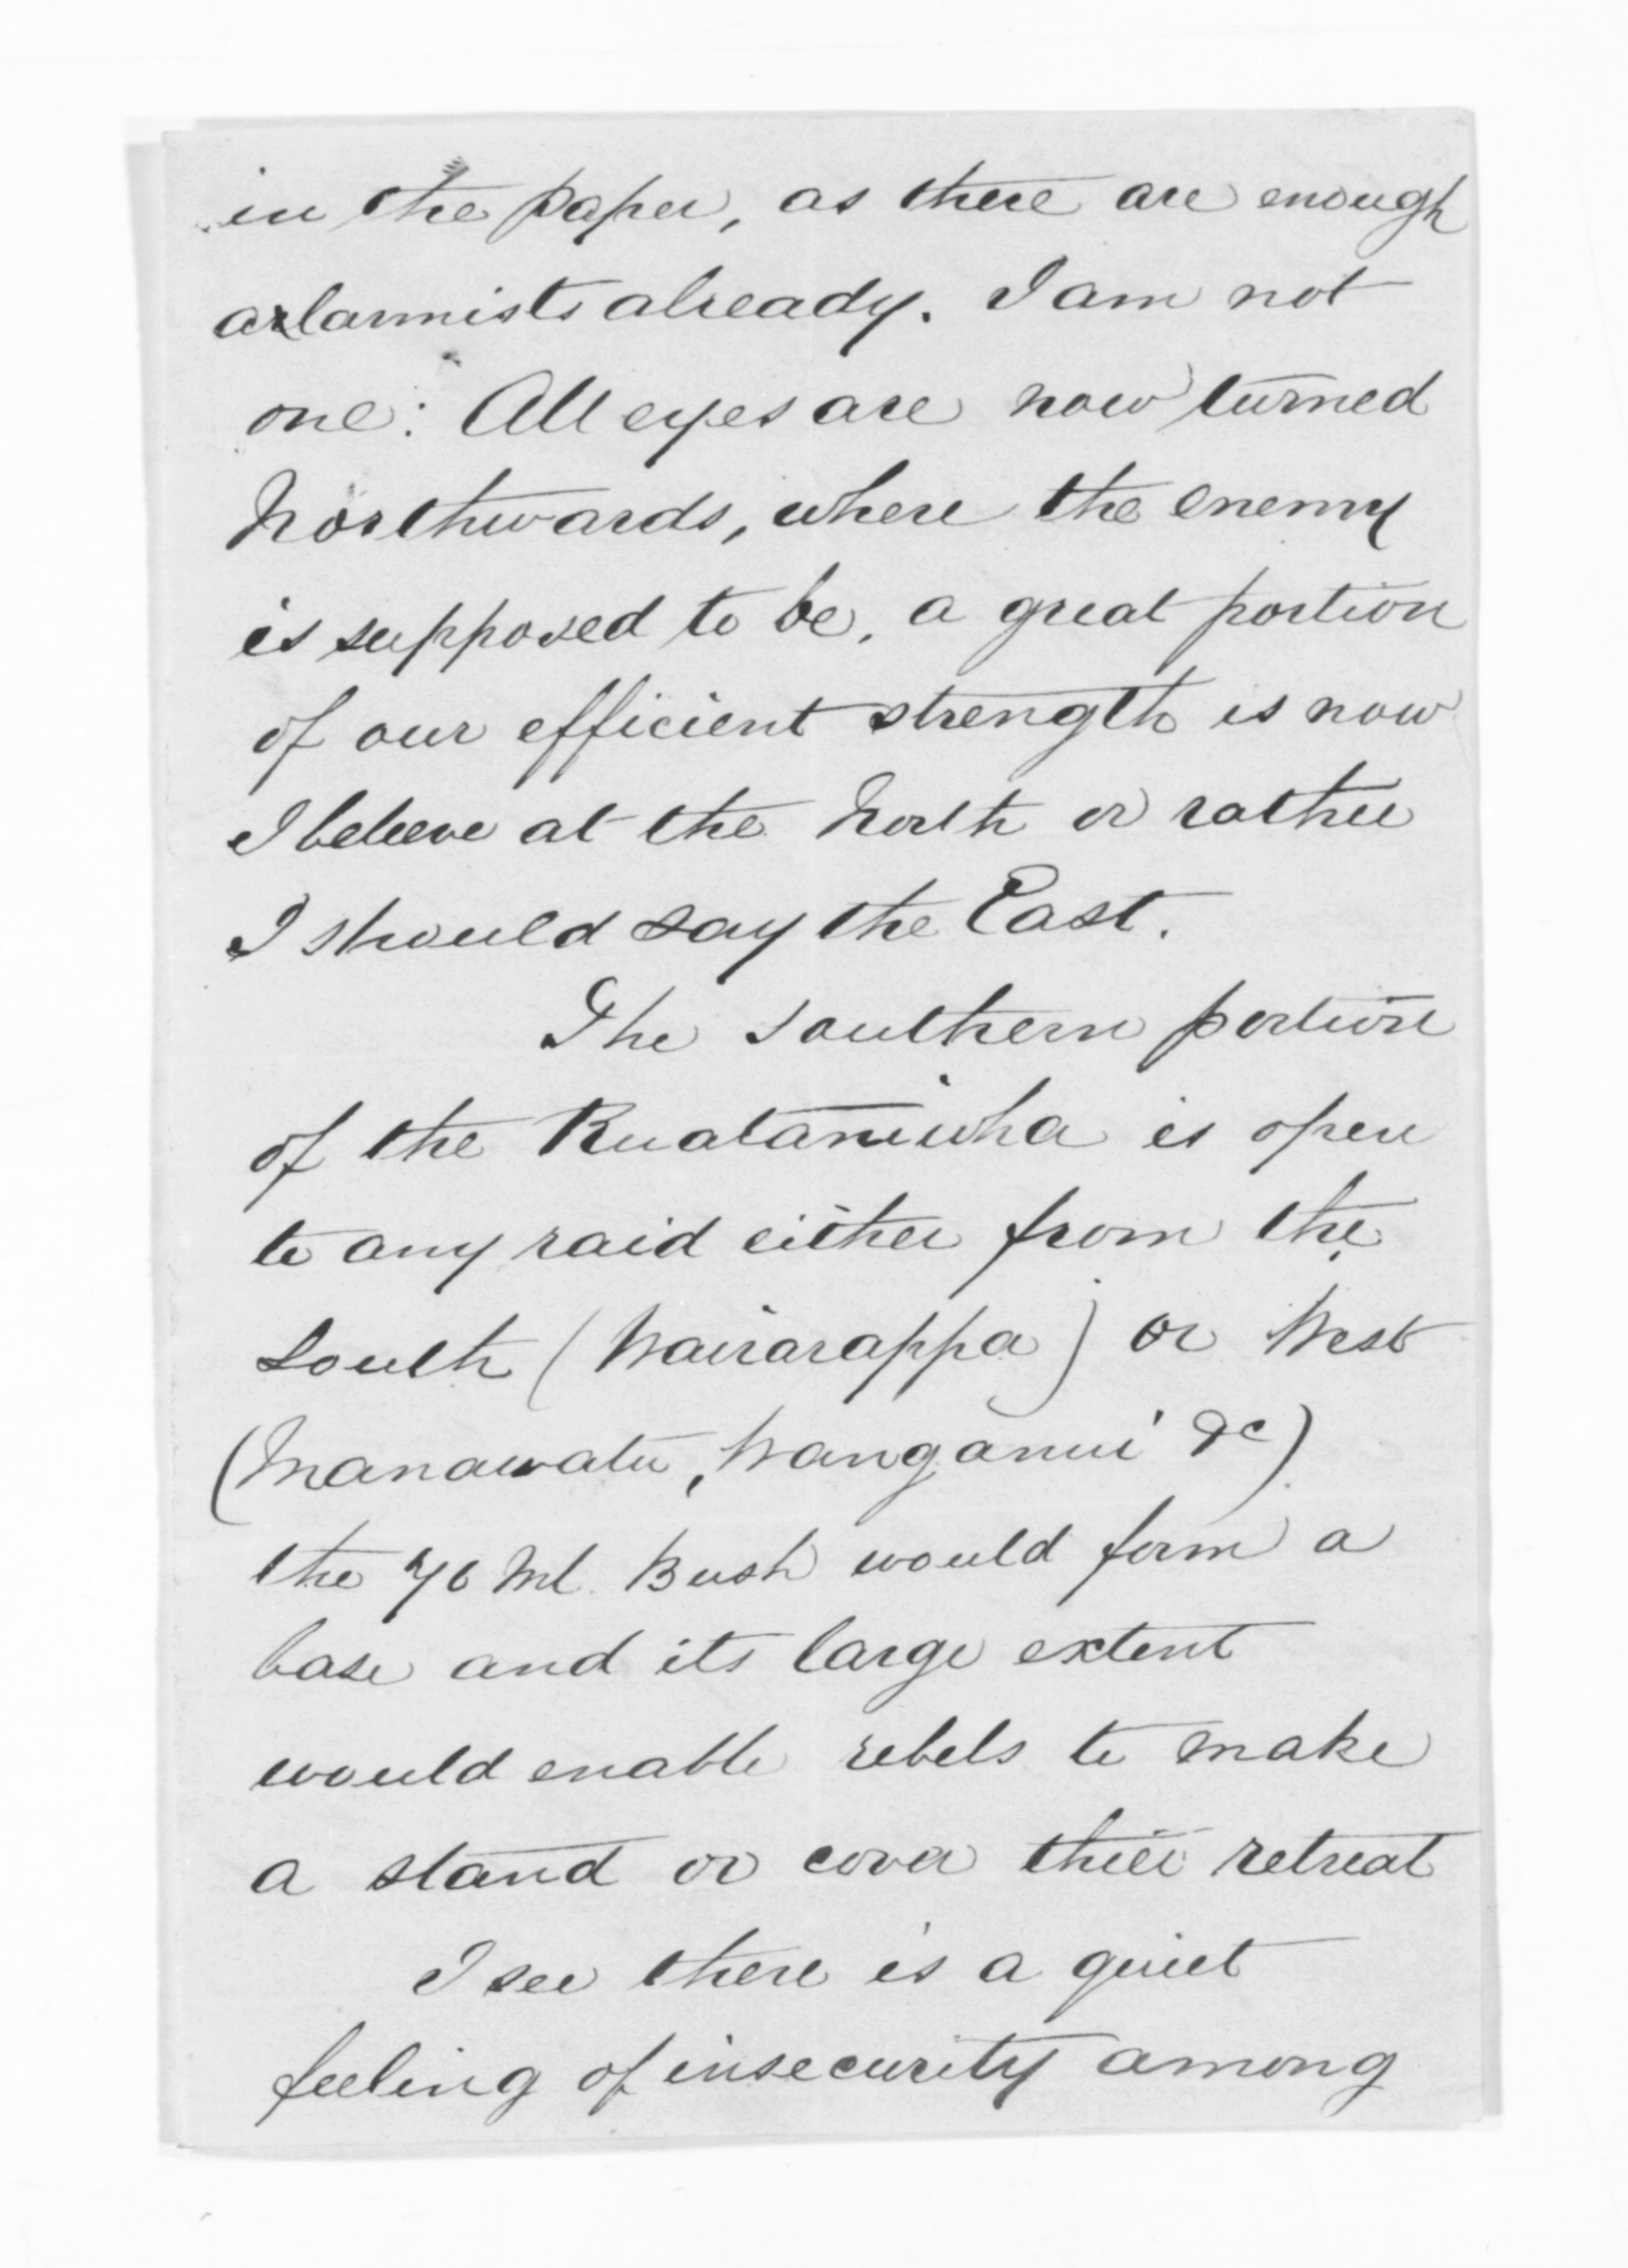 in the paper, as there are enough
alarmists already. I am not
one: All eyes are now turned
Northwards, where the enemy
is supposed to be, a great portion
of our efficient strength is now
I believe at the North or rather
I should say the East.
The Southern portion
of the Ruataniwha is open
to any raid either from the
South (Wairarappa) or West
(Manawatu, Wanganui &c)
the 70 Ml Bush would form a
base and its large extent
would enable rebels to make
a stand or cover their retreat
I see there is a quiet
feeling of insecurity among